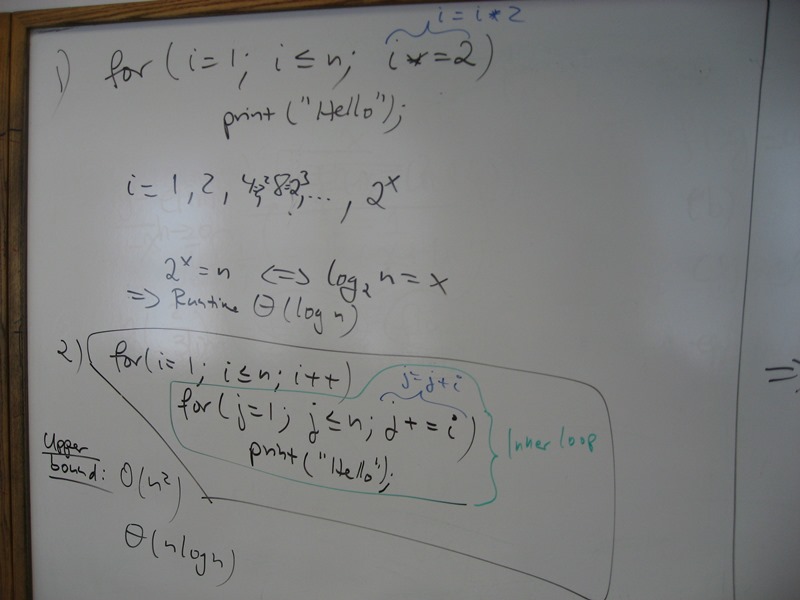 i = i * 2
1) for (i=1; i ≤ n; i *= 2)
print ("Hello");
i = 1, 2, 4=2², 8=2³, ..., 2ˣ
2ˣ = n <=> log₂ n = x
=> Runtime Θ(log n)
2) for(i=1; i ≤ n; i++)
j=j+i
for(j=1; j ≤ n; j += i)
Inner loop
print("Hello");
Upper
bound: O(n²)
Θ(n log n)
=>